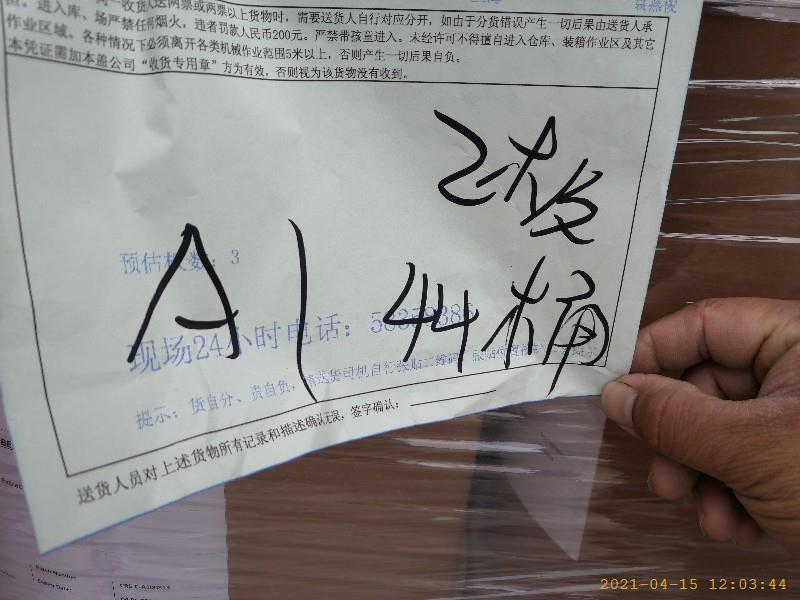 同一收货人送两票或两票以上货物时，需要送货人自行对应分开，如由于分货错误产生一切后果由送货人承
担。进入库、场严禁任何烟火，违者罚款人民币200元。严禁带孩童进入。未经许可不得擅自进入仓库、装箱作业区及其它
作业区域。各种情况下必须离开各类机械作业范围5米以上，否则产生一切后果自负。
本凭证需加本盖公司“收货专用章”方为有效，否则视为该货物没有收到。
2板
预估板数：3
A1 44桶
现场24小时电话：
提示：货自分、责自负，请送货司机自行张贴二维码
送货人员对上述货物所有记录和描述确认无误，签字确认：
2021-04-15 12:03:44